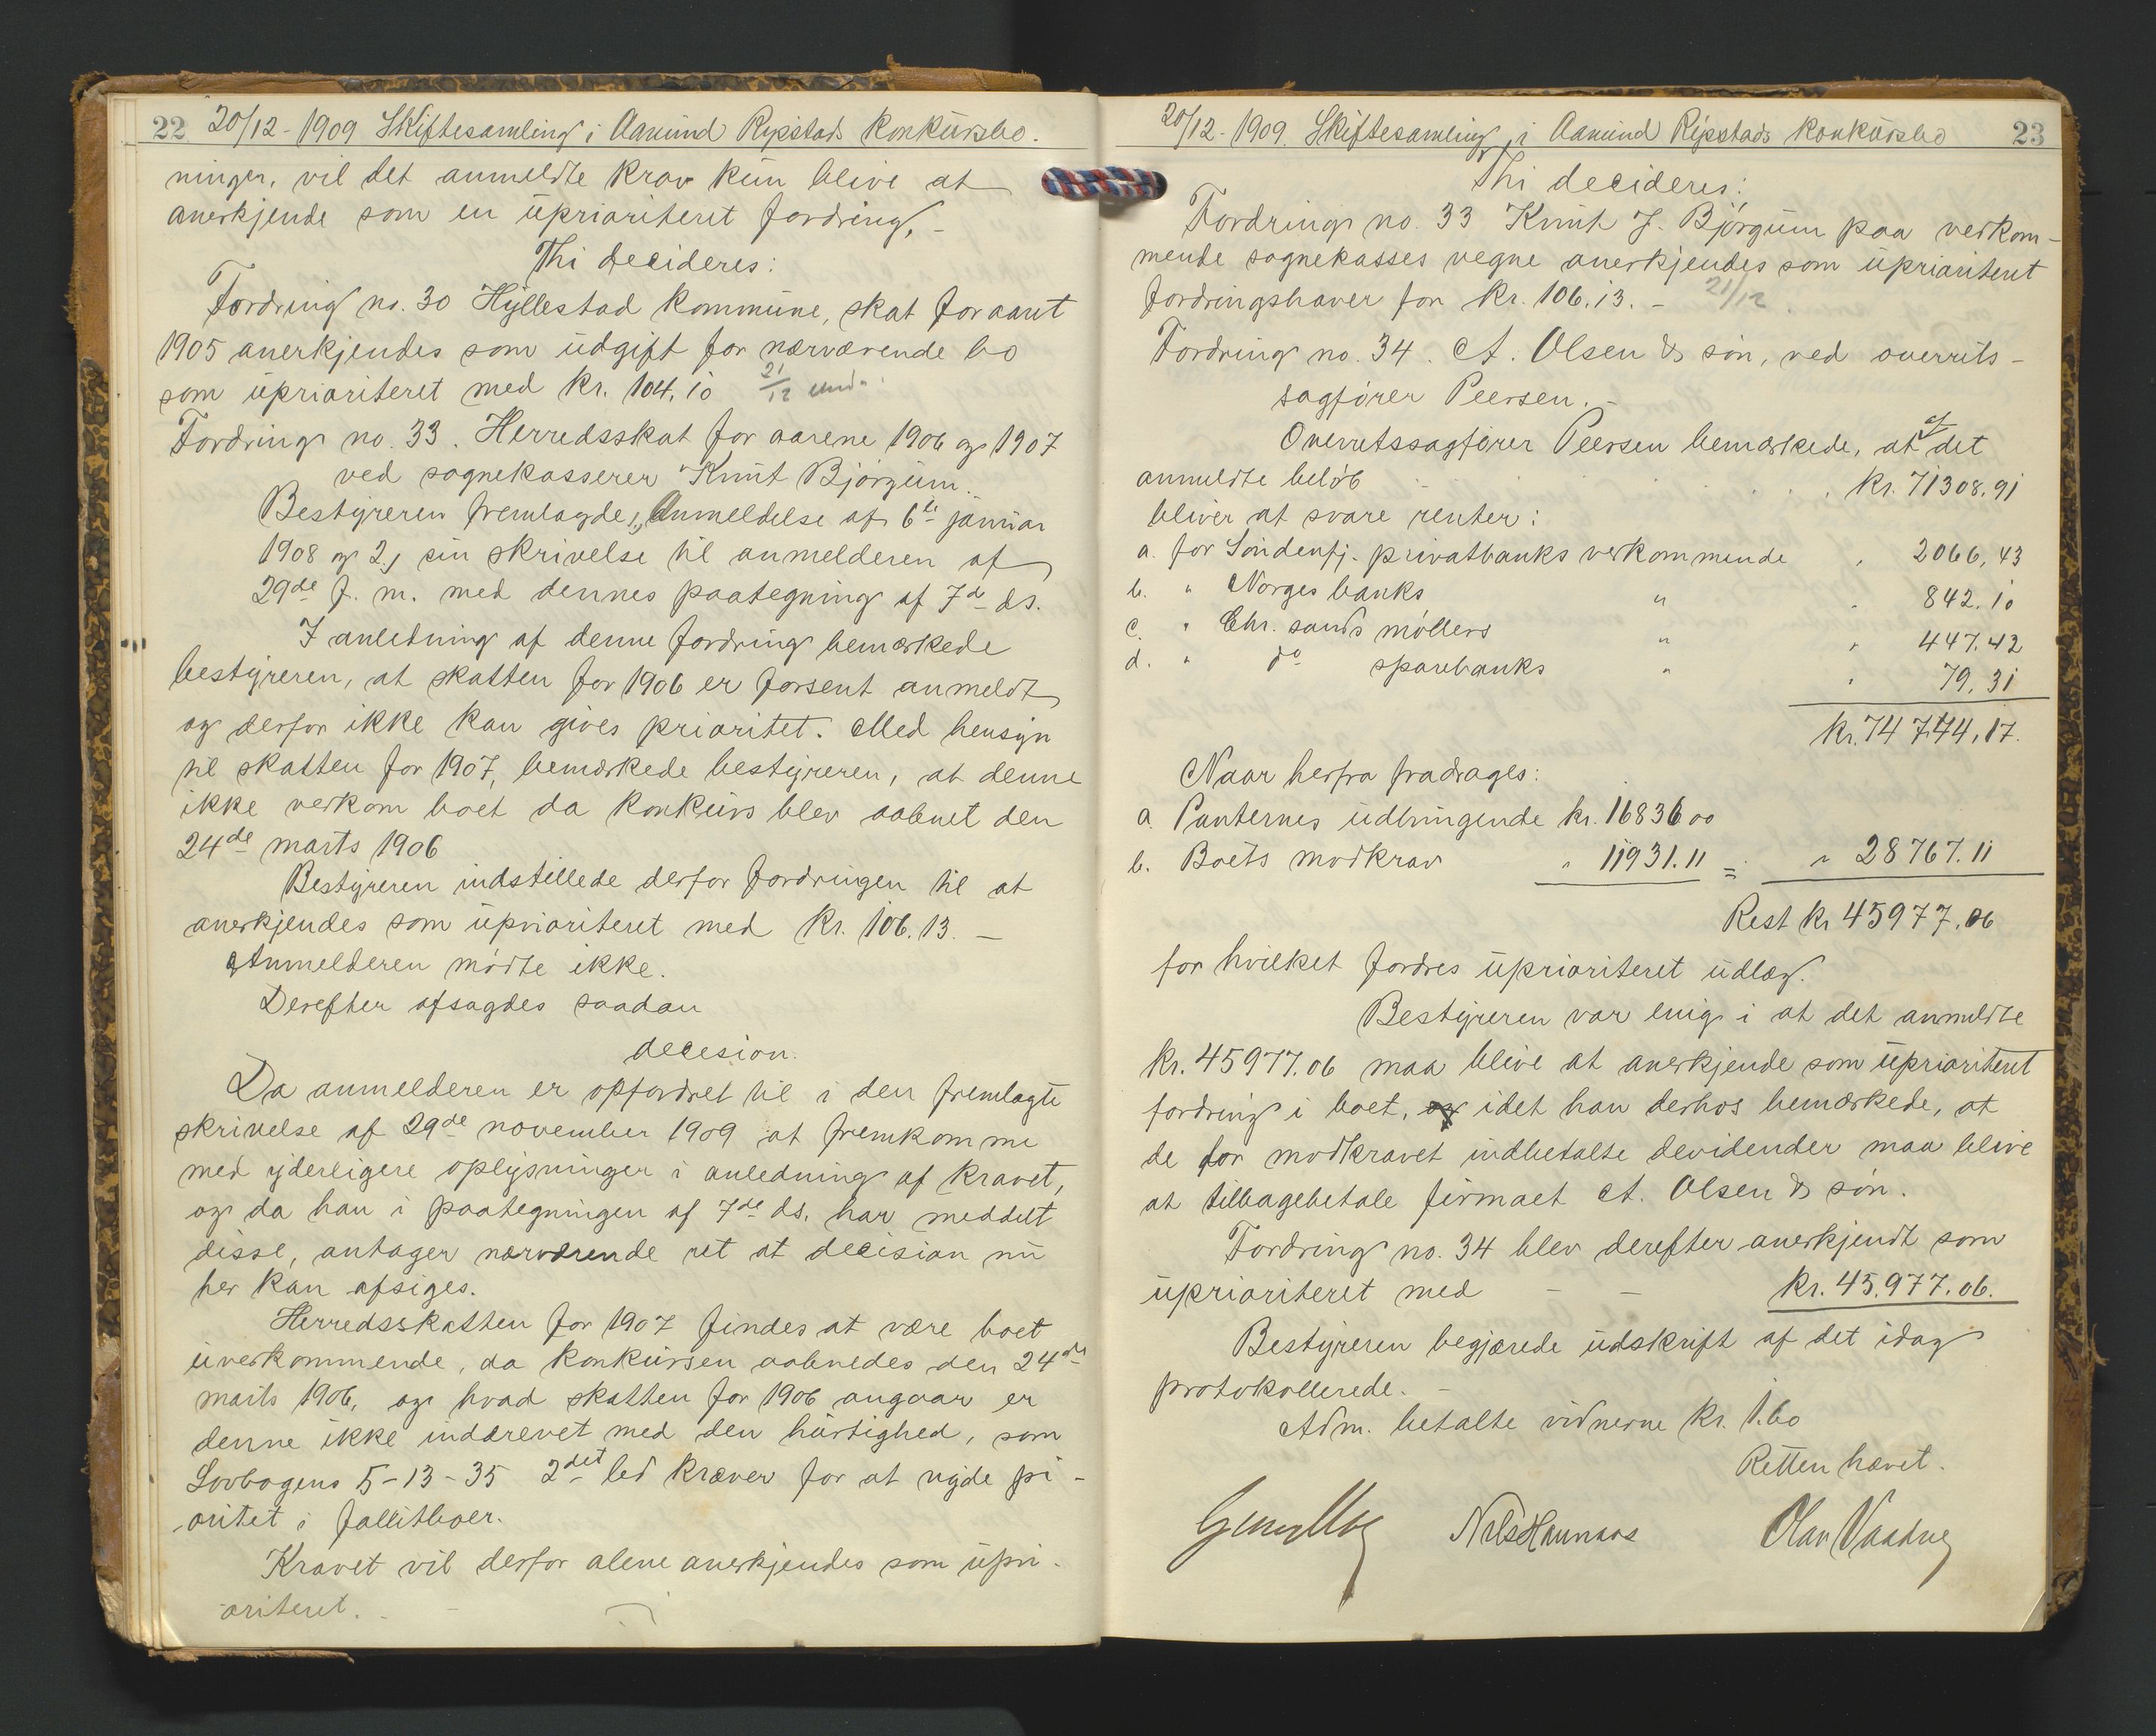 22 20/12-1909 Skiftesamling i Aamund Rysstads konkursbo.
ninger, vil det anmeldte krav kun blive at
anerkjende som en uprioriteret fordring. -
Thi decideres:
Fordring no. 30 Hyllestad kommune, skat for aaret
1905 anerkjendes som udgift for nærværende bo
som uprioriteret med kr. 104.10 21/12
Fordring no. 33. Herredsskat for aarene 1906 og 1907
ved sognekasserer Knut Bjørgum.
Bestyreren fremlagde 1, Anmeldelse af 6te januar
1908 og 2, sin skrivelse til anmelderen af
29de f. m. med dennes paategning af 7de ds.
I anledning af denne fordring bemærkede
bestyreren, at skatten for 1906 er forsent anmeldt
og derfor ikke kan gives prioritet. Med hensyn
til skatten for 1907, bemærkede bestyreren, at denne
ikke verkom boet da konkurs blev aabnet den
24de marts 1906
Bestyreren indstillede derfor fordringen til at
anerkjendes som uprioriteret med kr. 106.13. -
Anmelderen mødte ikke.
Derefter afsagdes saadan
decesion.
Da anmelderen er opfordret til i den fremlagte
skrivelse af 29de november 1909 at fremkomme
med yderligere oplysninger i anledning af kravet,
og da han i paategningen af 7de ds. har meddelt
disse, antager nærværende ret at decision nu
her kan afsiges.
Herredsskatten for 1907 findes at være boet
uverkommende, da konkursen aabnedes den 24de
marts 1906, og hvad skatten for 1906 angaar er
denne ikke inddrevet med den hurtighed, som
Lovbogens 5-13-35 2det led kræver for at nyde pi-
oritet i fallitboer.
Kravet vil derfor alene anerkjendes som upri-
oriteret. -
20/12-1909. Skiftesamling i Aamund Rysstads konkursbo 23
Thi decideres:
Fordring no. 33 Knut J. Bjørgum paa verkom-
mende sognekasses vegne anerkjendes som uprioriteret
fordringshaver for kr. 106.13. - 21/12
Fordring no. 34. A. Olsen & søn, ved overrets-
sagfører Peersen. -
Overretssagfører Peersen bemærkede, at af det
anmeldte beløb kr. 71308.91
bliver at svare renter:
a. for Søndenfj. privatbanks verkommende " 2066,43
b. " Norges banks " " 842.10
c. " Chr. sands møllers " " 447.42
d. " do sparebanks " " 79,31
kr. 74744,17.
Naar herfra fradrages:
a. Panternes udbringende kr. 16836 00
b. Boets modkrav " 11931.11 = " 28767.11
Rest kr 45977.06
for hvilket fordres uprioriteret udlæg.
Bestyreren var enig i at det anmeldte
kr. 45977.06 maa blive at anerkjende som uprioriteret
fordring i boet, og idet han derhos bemærkede, at
de for modkravet indbetalte devidender maa blive
at tilbagebetale firmaet A. Olsen & søn.
Fordring no. 34 blev derefter anerkjendt som
uprioriteret med - - kr. 45.977.06.
Bestyreren begjærede udskrift af det idag
protokollerede. -
Adm. betalte vidnerne kr. 1.60
Retten hævet.
Nils Hannaas Olav Vaadne